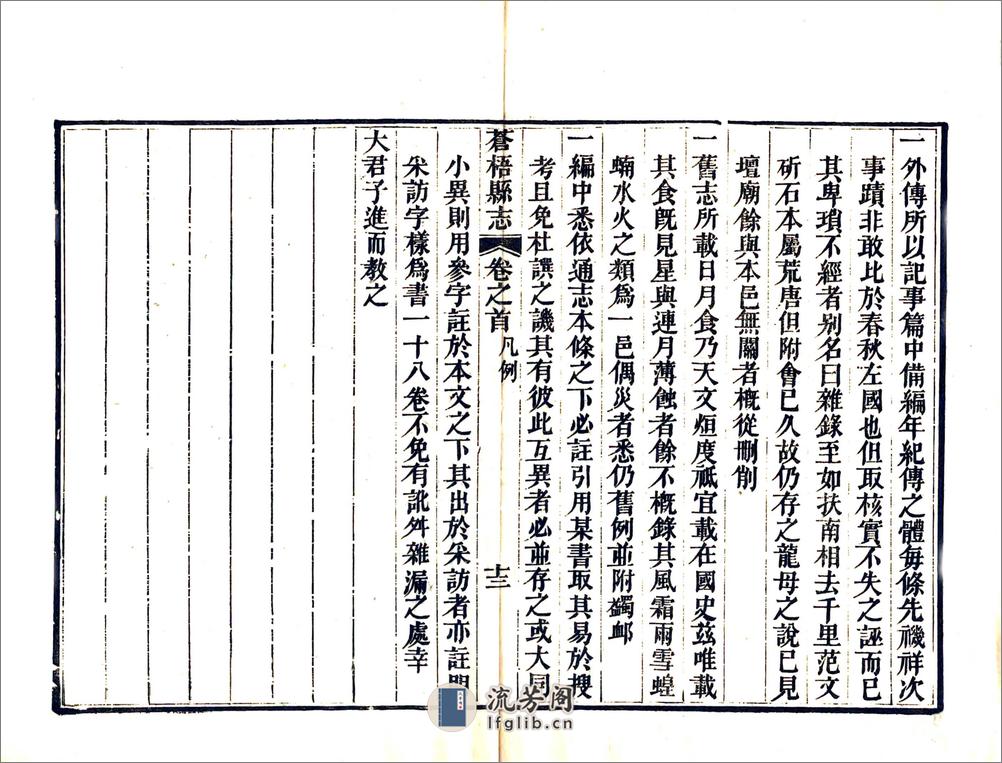 一外傳所以記事篇中備編年紀傳之體每條先禨祥次
事蹟非敢比於春秋左國也但取核實不失之誣而已
其卑瑣不經者别名曰雜錄至如扶南相去千里范文
斫石本屬荒唐但附會已久故仍存之龍母之說已見
壇廟餘與本邑無關者概從删削
一舊志所載日月食乃天文烜度祗宜載在國史兹唯載
其食旣見星與連月薄蝕者餘不概錄其風霜雨雪蝗
蝻水火之類爲一邑偶災者悉仍舊例並附蠲䘏
一編中悉依通志本條之下必註引用某書取其易於搜
考且免杜譔之譏其有彼此互異者必並存之或大同
蒼梧縣志 卷之首 凡例 十三
小異則用參字註於本文之下其出於采訪者亦註明
采訪字樣爲書一十八卷不免有訛舛雜漏之處幸
大君子進而教之
流芳阁
lfglib.cn